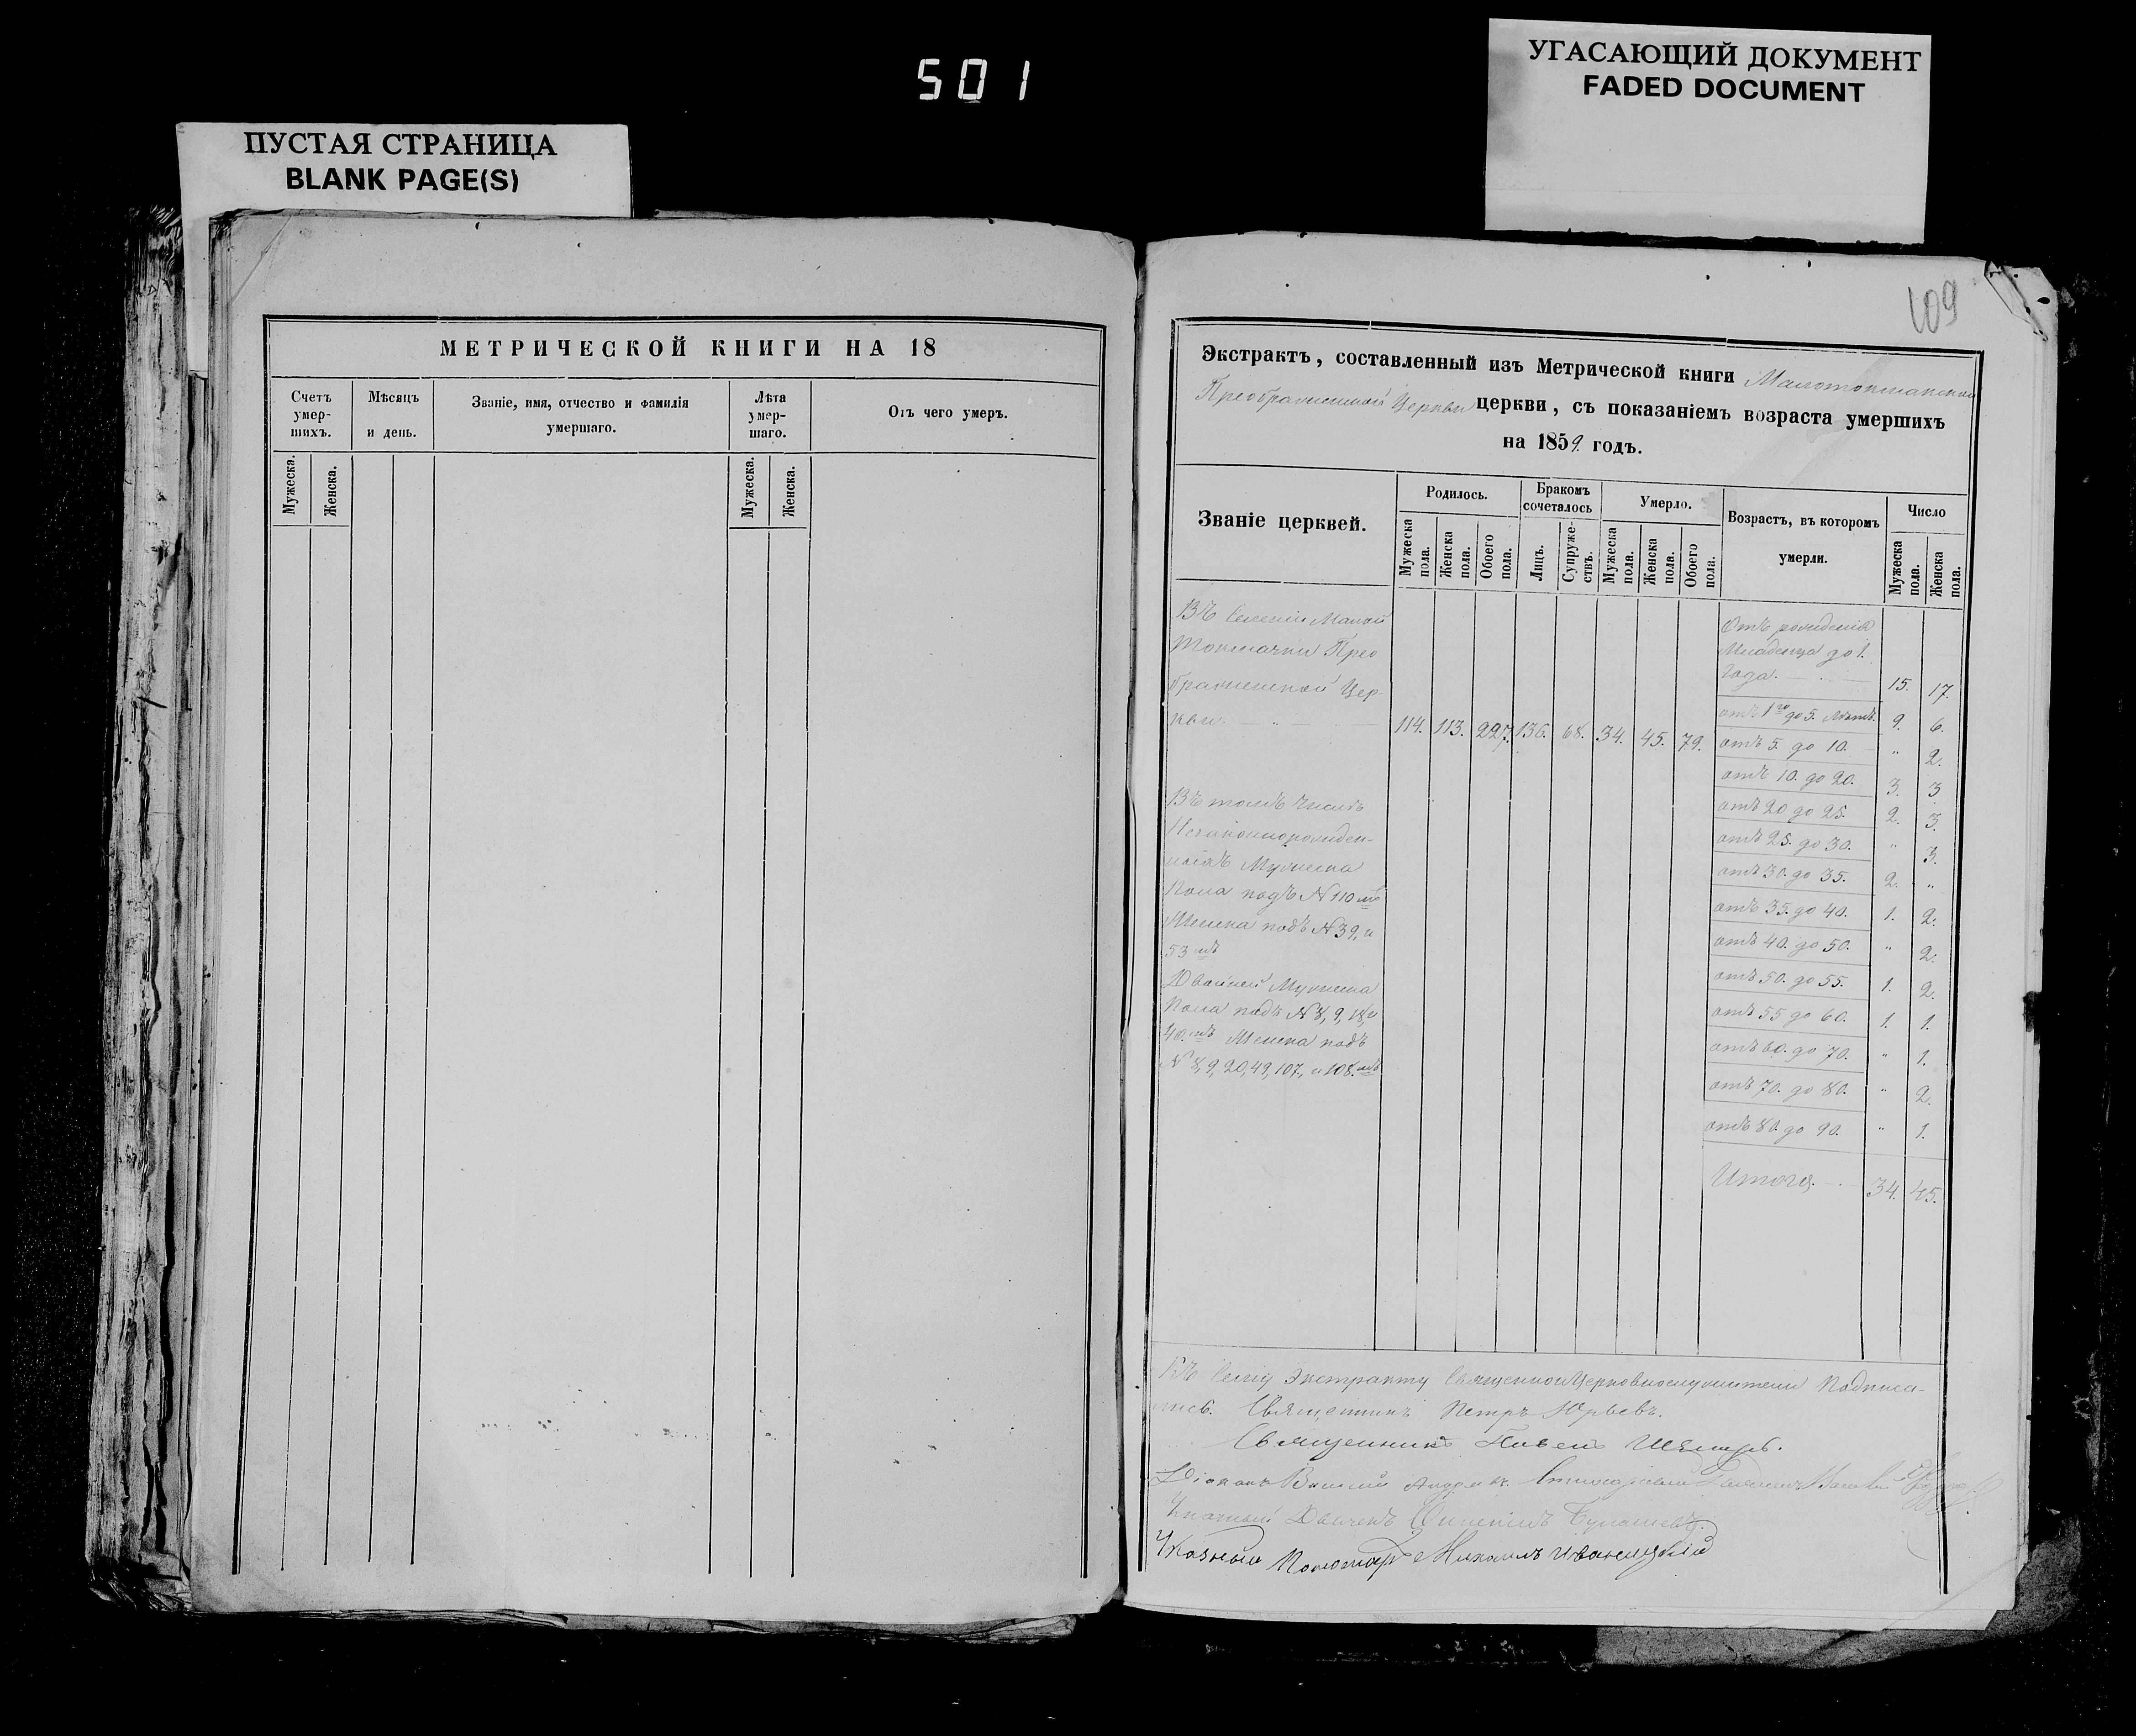 501
УГАСАЮЩИЙ ДОКУМЕНТ
FADED DOCUMENT
ПУСТАЯ СТРАНИЦА
BLANK PAGE(S)
МЕТРИЧЕСКОЙ КНИГИ НА 18
Счетъ умер-шихъ.
Мѣсяцъ и день.
Званіе, имя, отчество и фамилія умершаго.
Лѣта умер-шаго.
Отъ чего умеръ.
Мужеска.
Женска.
Мужеска.
Женска.
109
Экстрактъ, составленный изъ Метрической книги Малотокмакской
Преображенской Церкви церкви, съ показаніемъ возраста умершихъ
на 1859 годъ.
Званіе церквей.
Родилось.
Бракомъ сочеталось
Умерло.
Возрастъ, въ которомъ умерли.
Число
Мужеска пола.
Женска пола.
Обоего пола.
Лицъ.
Супруже-ствъ.
Мужеска пола.
Женска пола.
Обоего пола.
Мужеска пола.
Женска пола.
Въ Селеніи Малой
Токмачки Прео
браженской Цер-
кви. 114. 113. 227. 136. 68. 34. 45. 79.
Въ томъ числѣ
Незаконнорожден-
ныхъ Мужеска
Пола подъ N 110 мъ
Женска подъ N 39, и
53 мъ
Двойней Мужеска
Пола подъ N 8, 9, 18, и
40. мъ Женска подъ
N 8, 9, 20, 49, 107, и 108. мъ
Отъ рожденія
Младенца до 1.
Года. 15. 17.
отъ 1го до 5. лѣтъ. 9. 6.
отъ 5. до 10. " 2.
отъ 10. до 20. 3. 3
отъ 20 до 25. 2. 3.
отъ 25. до 30. " 3.
отъ 30. до 35. 2. "
отъ 35. до 40. 1. 2.
отъ 40. до 50. " 2.
отъ 50. до 55. 1. 2.
отъ 55 до 60. 1. 1.
отъ 60. до 70. " 1.
отъ 70. до 80. " 2.
отъ 80. до 90. " 1.
Итого. 34. 45.
Къ сему Экстракту Священноцерковнослужители Подписа-
лись. Священникъ Петръ Юрьевъ.
Священникъ Павелъ
Діаконъ Василій
Указный Дьячекъ
Указный Пономарь Михаилъ Иваницкій